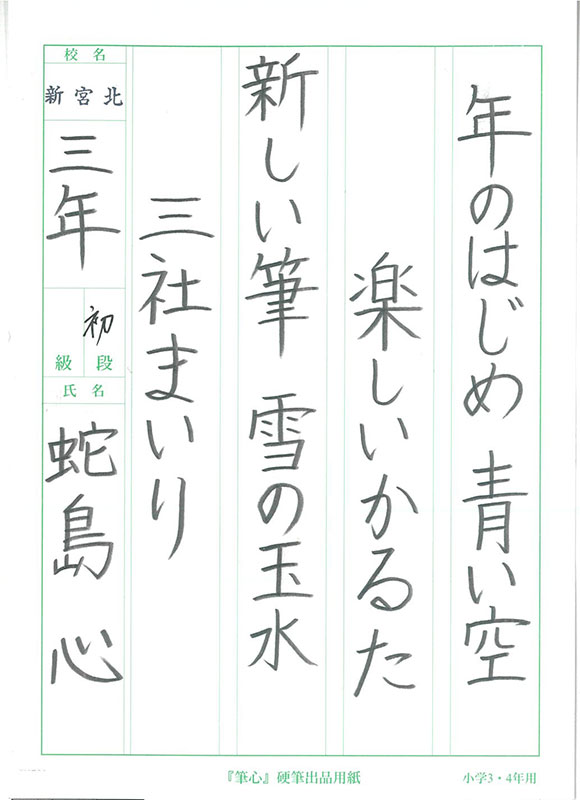 年のはじめ 青い空
楽しいかるた
新しい筆 雪の玉水
三社まいり
校名
新宮北
三年
初
級 段
氏名
蛇島 心
『筆心』硬筆出品用紙
小学3・4年用